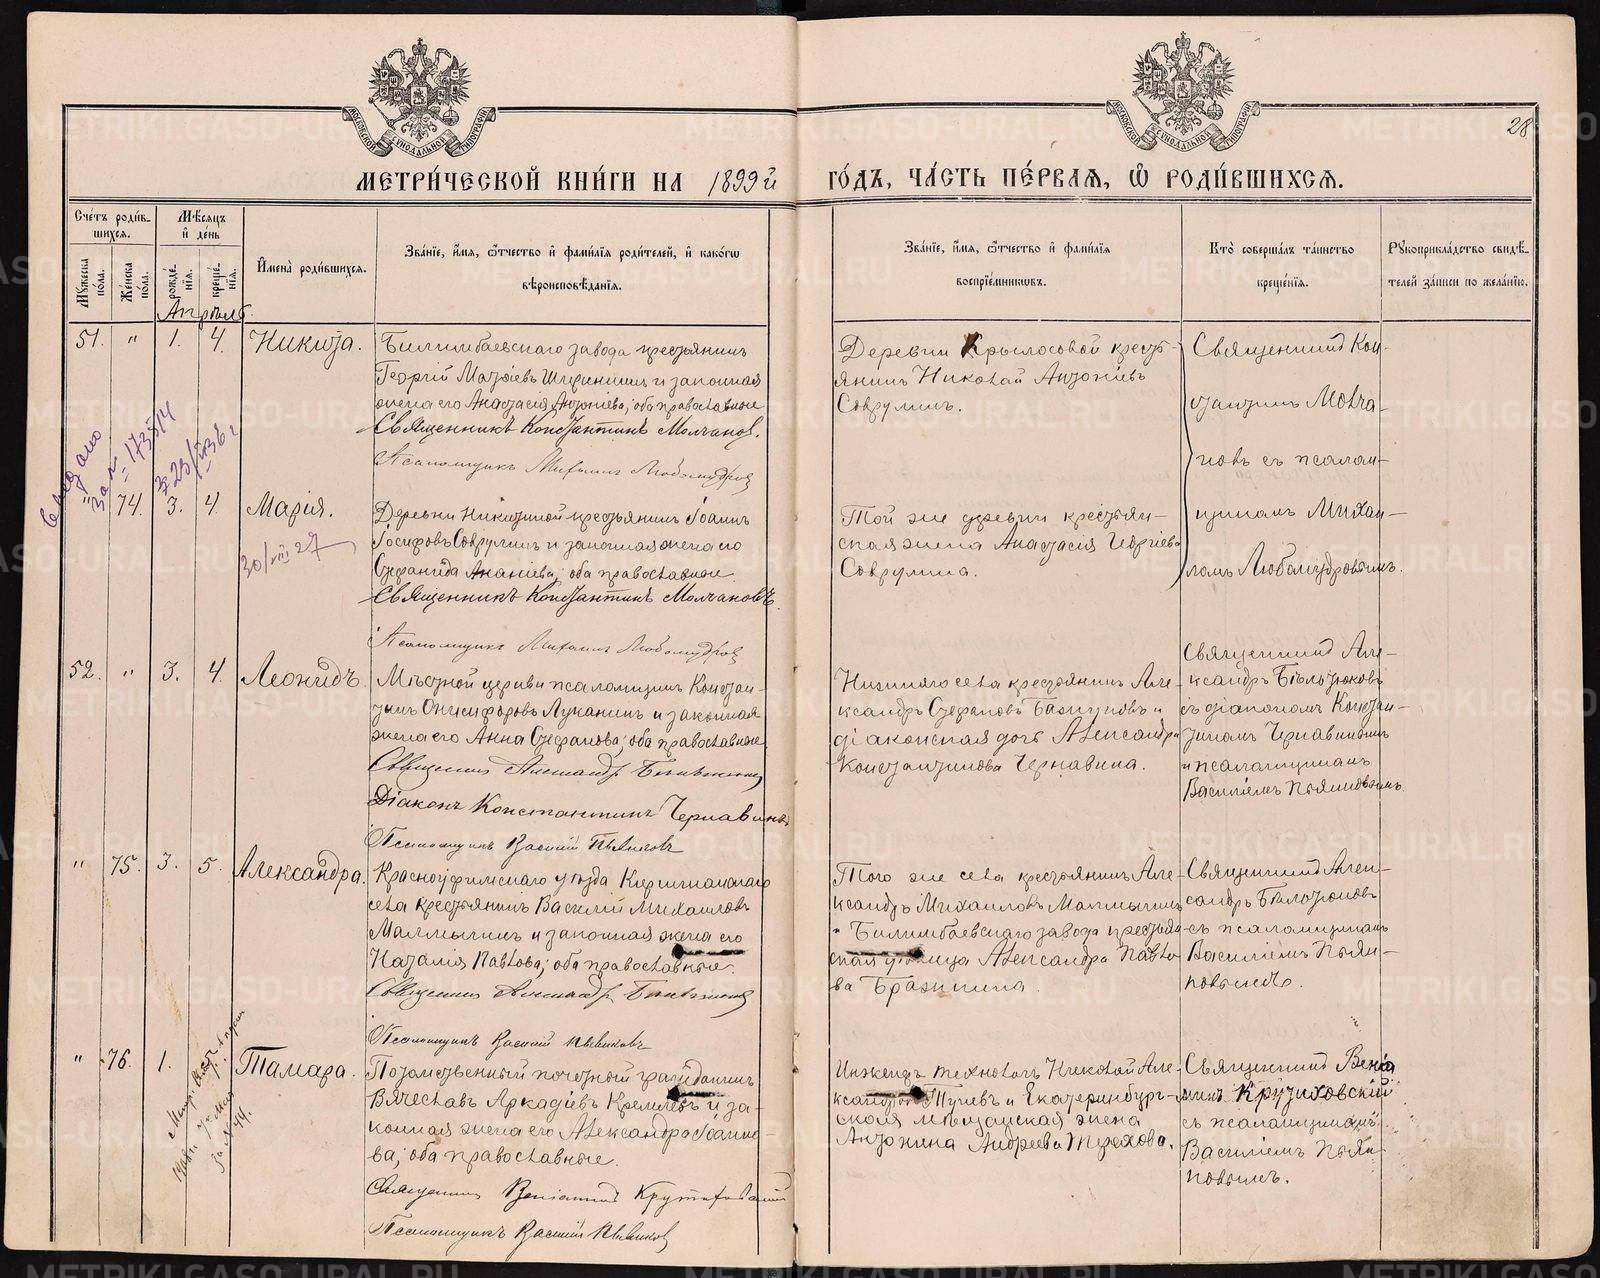 МОСКОВСКОЙ СУНОДАЛЬНОЙ ТИПОГРАФІИ
МОСКОВСКОЙ СУНОДАЛЬНОЙ ТИПОГРАФІИ
28
МЕТРИ́ЧЕСКОЙ КНИ́ГИ НА 1899й ГО́ДЪ, ЧА́СТЬ ПЕ́РВАѦ, Ѡ РОДИ́ВШИХСѦ.
Сче́тъ роди́в-
шихсѧ.
Мѣ́сѧцъ
и҆ де́нь
Мꙋ́жеска по́ла.
Же́нска по́ла.
рожде́-нїѧ.
креще́-нїѧ.
И҆мена̀ роди́вшихсѧ.
Зва́нїе, и҆́мѧ, ѻ҆́тчество и҆ фами́лїѧ роди́телей, и҆ како́гѡ
вѣроисповѣ́данїѧ.
Зва́нїе, и҆́мѧ, ѻ҆́тчество и҆ фами́лїѧ
воспрїе́мникѡвъ.
Кто̀ соверша́лъ та́инство
креще́нїѧ.
Рꙋкоприкла́дство свидѣ́-
телей за́писи по жела́нїю.
Апрѣль
51. " 1. 4. Никита.
Билимбаевскаго завода крестьянинъ
Георгій Матѳіевъ Ширинкинъ и законная
жена его Анастасія Антоніева; оба православные
Священникъ Константинъ Молчановъ.
Псаломщикъ Михаилъ Любомудровъ
Деревни Крылосовой кресть-
янинъ Николай Антоніевъ
Соврулинъ.
Священникъ Кон-
стантинъ Молча-
новъ съ псалом-
щикомъ Михаи-
ломъ Любомудровымъ.
" 74. 3. 4. Марія.
30/VIII 27
Деревни Никитиной крестьянинъ Іоаннъ
Іосифовъ Соврулинъ и законная жена его
Стефанида Ананіева; оба православные.
Священникъ Константинъ Молчановъ.
Псаломщикъ Михаилъ Любомудровъ
Той же деревни крестьян-
ская жена Анастасія Георгіева
Соврулина.
52. " 3. 4. Леонидъ.
Мѣстной церкви псаломщикъ Констан-
тинъ Онисифоровъ Луканинъ и законная
жена его Анна Стефанова; оба православные
Священникъ Александръ
Діаконъ Константинъ Чернавинъ
Псаломщикъ Василій
Нижняго села крестьянинъ Але-
ксандръ Стефановъ и
діаконская дочь Александра
Константинова Чернавина.
Священникъ Але-
ксандръ
съ діакономъ Констан-
тиномъ Чернавинымъ
и псаломщикомъ
Василіемъ
" 75. 3. 5. Александра.
Красноуфимскаго уѣзда
села крестьянинъ Василій Михаиловъ
Малмыгинъ и законная жена его
Наталія Павлова; оба православные.
Священникъ Александръ
Псаломщикъ Василій
Того же села крестьянинъ Але-
ксандръ Михаиловъ Малмыгинъ
и Билимбаевскаго завода крестьян-
ская дѣвица Александра Павло-
ва
Священникъ Алек-
сандръ
съ псаломщикомъ
Василіемъ
" 76. 1. Тамара.
Потомственный почетный гражданинъ
Вячеславъ Аркадіевъ Кремлевъ и за-
конная жена его Александра Іоанно-
ва; оба православные.
Священникъ Веніаминъ
Псаломщикъ Василій
Инженеръ технологъ Николай Але-
ксандровъ и Екатеринбург-
ская мѣщанская жена
Антонина Андреева Терехова.
Священникъ Веніа-
минъ
съ псаломщикомъ
Василіемъ
METRIKI.GASO-URAL.RU